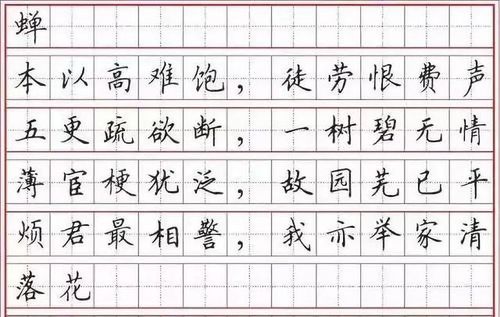 蝉
本以高难饱，徒劳恨费声
五更疏欲断，一树碧无情
薄宦梗犹泛，故园芜已平
烦君最相警，我亦举家清
落花